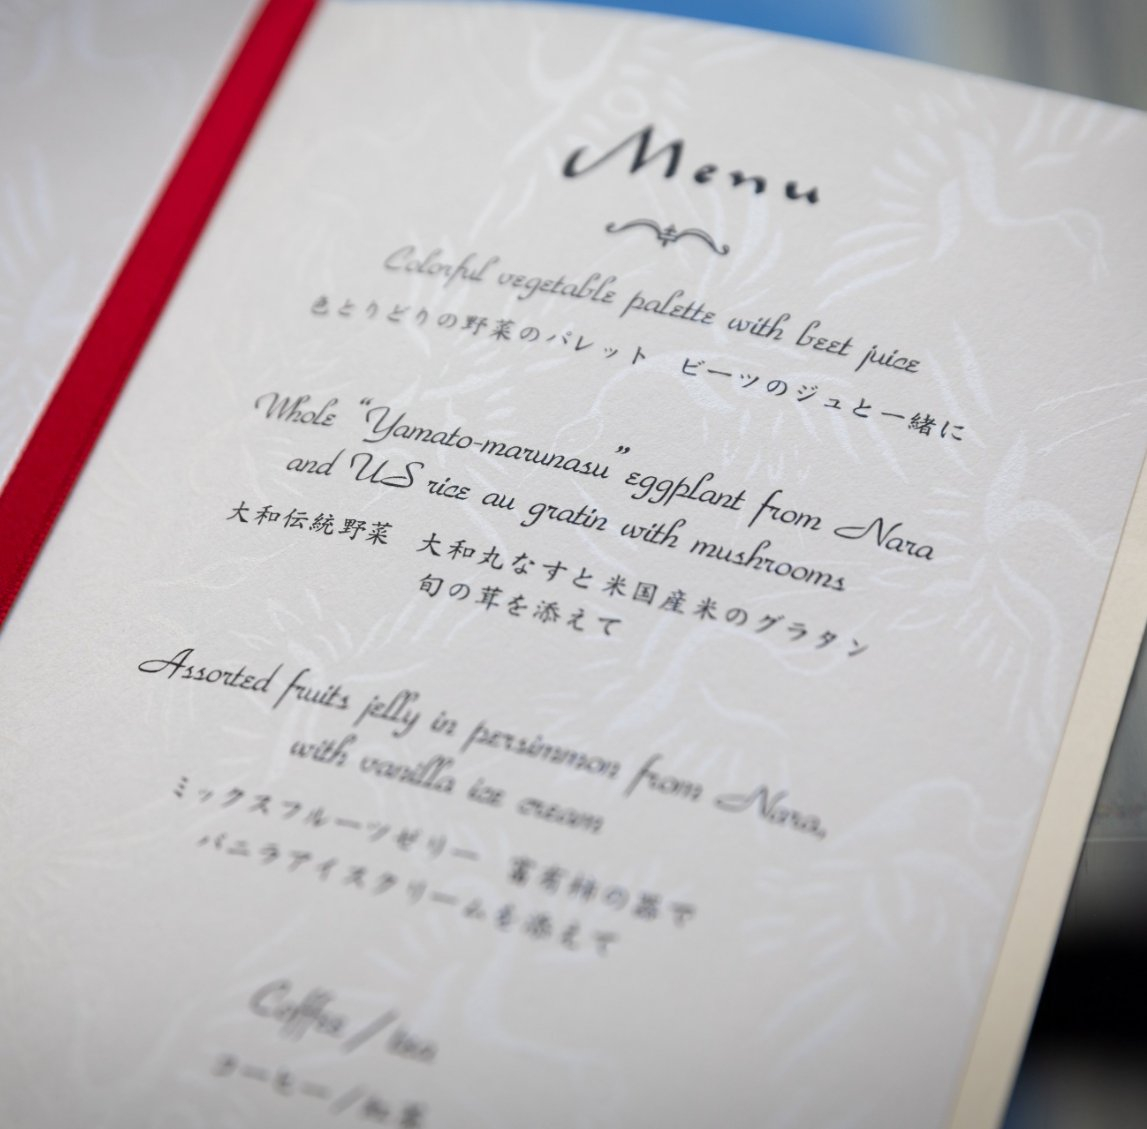 Menu
Colorful vegetable palette with beet juice
色とりどりの野菜のパレット　ビーツのジュと一緒に
Whole “Yamato-marunasu” eggplant from Nara
and US rice au gratin with mushrooms
大和伝統野菜　大和丸なすと米国産米のグラタン
旬の茸を添えて
Assorted fruits jelly in persimmon from Nara,
with vanilla ice cream
ミックスフルーツゼリー　富有柿の器で
バニラアイスクリームを添えて
Coffee / tea
コーヒー／紅茶